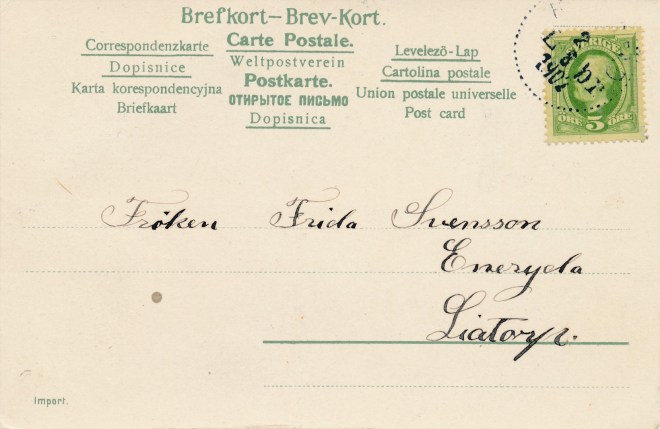 Brefkort—Brev-Kort.
Correspondenzkarte
Carte Postale.
Levelező-Lap
Dopisnice
Weltpostverein
Cartolina postale
Karta korespondencyjna
Postkarte.
Union postale universelle
Briefkaart
ОТКРЫТОЕ ПИСЬМО
Post card
Dopisnica
SVERIGE
ÖRE 5 ÖRE
Fröken Frida Svensson
Eneryda
Liatorp.
Import.